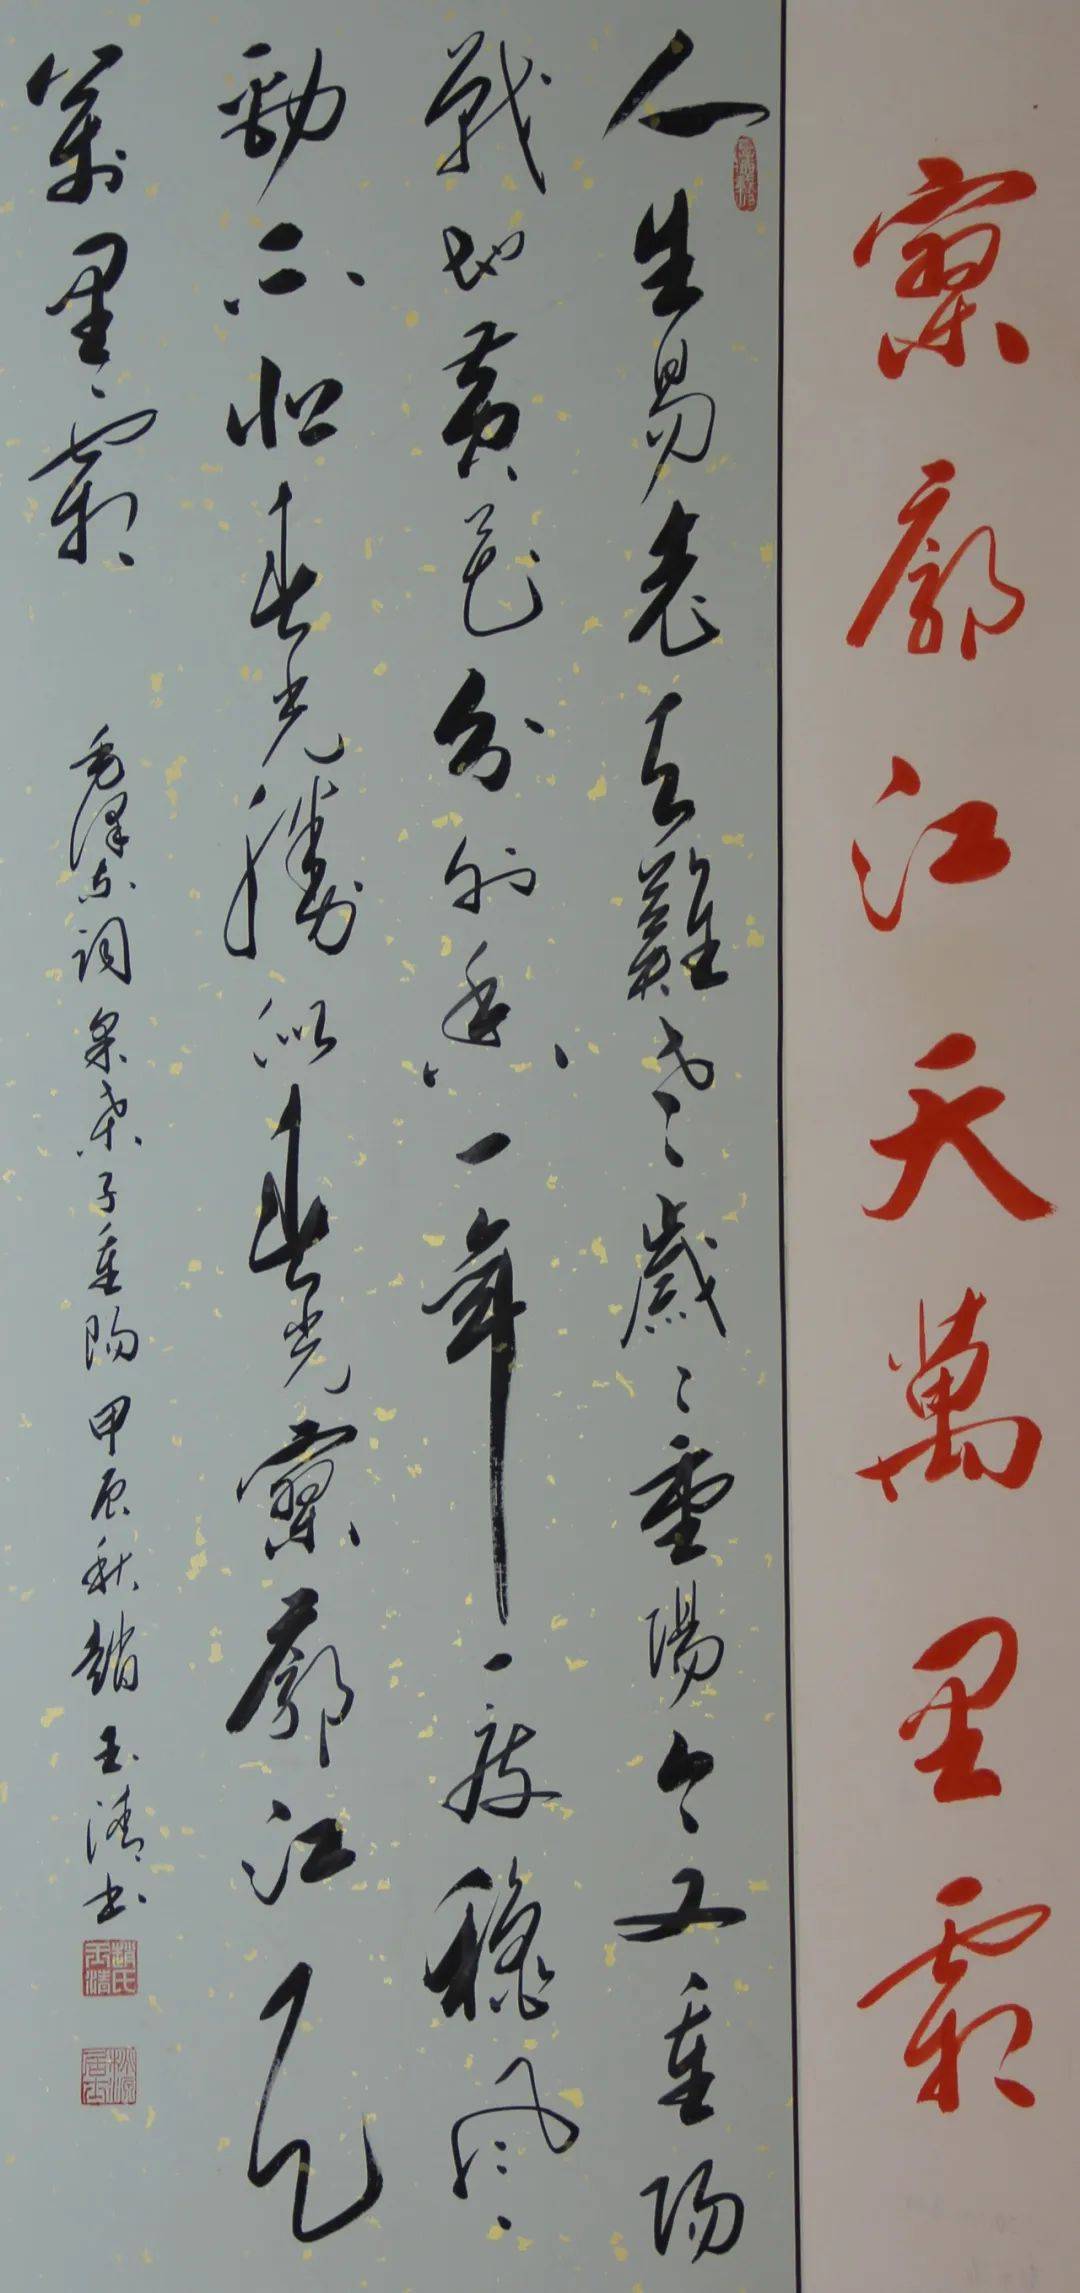 寥廓江天萬里霜
人生易老天難老歲〻重陽今又重陽
戰地黃花分外香一年一度穐風
勁不似春光勝似春光寥廓江天
萬里霜
毛澤東詞采桑子重陽甲辰秋趙玉清書
趙氏玉清